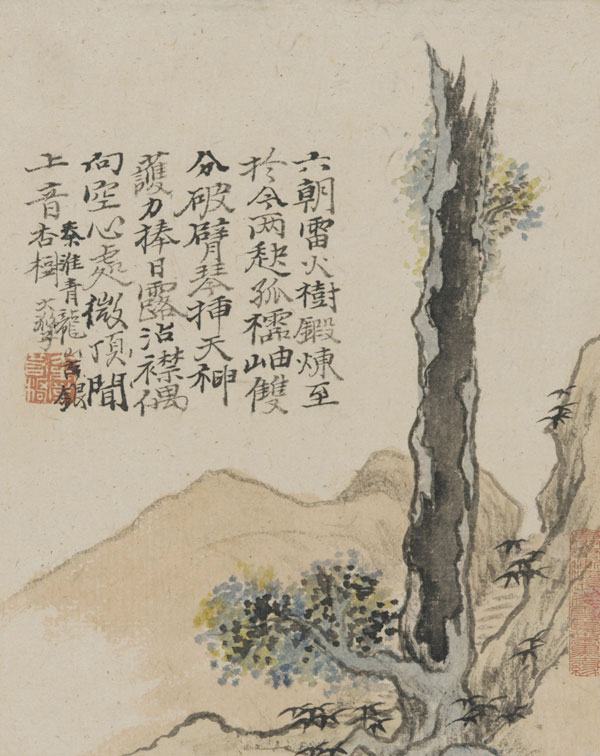 六朝雷火樹鍛煉至
於今兩孤岫雙
分破臂琴插天神
護力捧日露沾襟偶
向空心處微頂聞
上音
秦淮青龍山古銀
杏樹